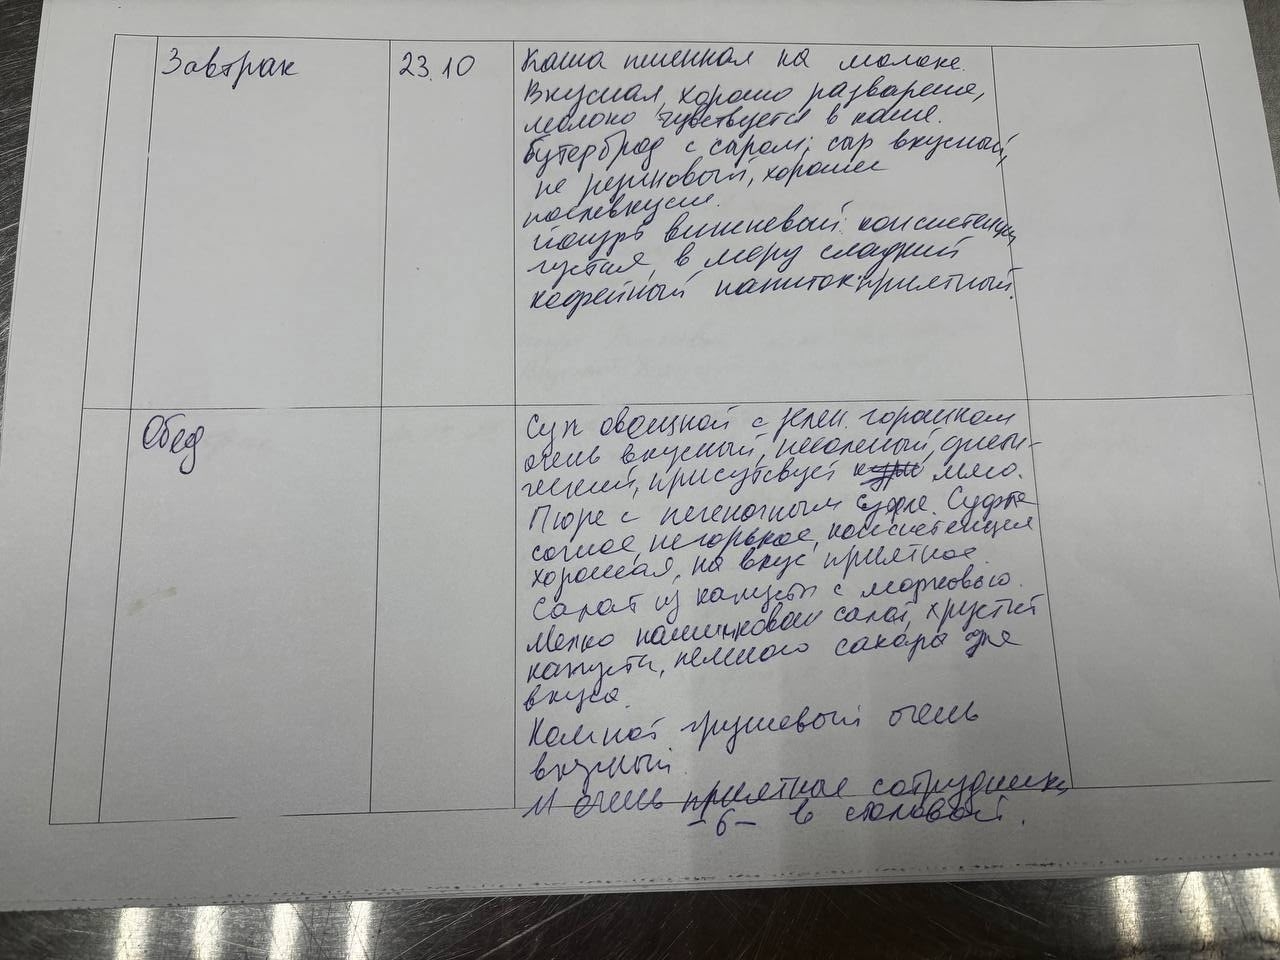 Завтрак
23.10
Каша пшенная на молоке.
Вкусная, хорошо разварена,
молоко чувствуется в каше.
Бутерброд с сыром: сыр вкусный,
не резиновый, хорошее
послевкусие.
Йогурт вишневый: консистенция
густая, в меру сладкий
Кофейный напиток: приятный.
Обед
Суп овощной с зелен. горошком
очень вкусный, несоленый, диети-
ческий, присутсвует мясо.
Пюре с печеночным суфле. Суфле
сочное, не горькое, консистенция
хорошая, на вкус приятное.
Салат из капусты с морковью.
Мелко нашинкован салат, хрустит
капуста, немного сахара для
вкуса.
Компот грушевый очень
вкусный.
И очень приятные сотрудники
-6- в столовой.